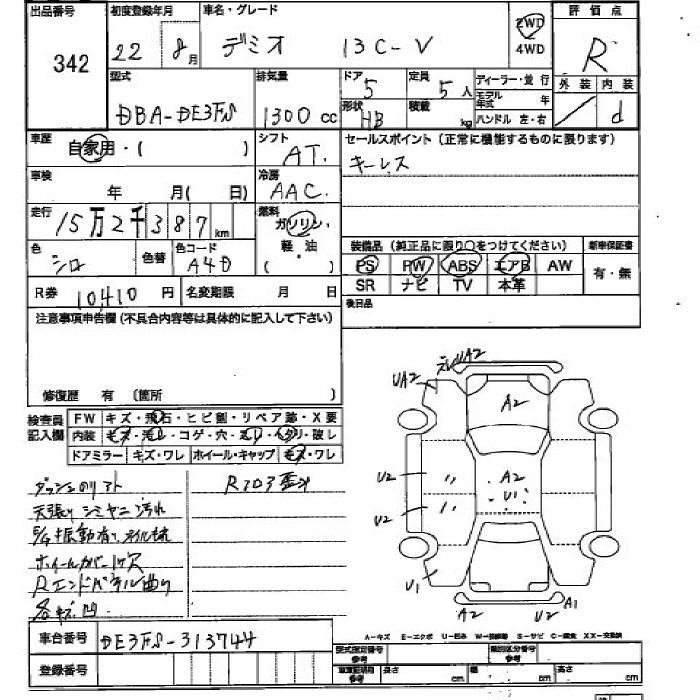 出品番号 初度登録年月 車名・グレード 評価点
342 22 8月 デミオ 13C-V 2WD 4WD R
型式 排気量 ドア 定員 ディーラー・並行 外装 内装
DBA-DE3FS 1300cc 5 5人 モデル年式 年 d
形状 HB 積載 kg ハンドル 左・右
車歴 自家用・( ) シフト AT. セールスポイント(正常に機能するものに限ります)
キーレス
車検 年 月( 日) 冷房 AAC
走行 15万2千387km 燃料 ガソリン・軽油( )
色 シロ 色替 色コード A4D 装備品(純正品に限り○をつけてください) 新車保証書
PS PW ABS エアB AW 有・無
SR ナビ TV 本革
R券 10410円 名変期限 月 日 後日品
注意事項申告欄(不具合内容等は具体的に記入して下さい)
修復歴 有 (箇所 )
検査員記入欄 FW キズ・飛石・ヒビ割・リペア跡・X要
内装 キズ・汚レ・コゲ・穴・スレ・ヘタリ・破レ
ドアミラー キズ・ワレ ホイール・キャップ キズ・ワレ
UA2 UA2
A2
A2
U1
U2
U2
U1
A2 U2 A1
ダッシュのリフト Rフロア歪
天張りシミヤニ汚れ
ホイールカバー1ケ欠
Rエンドパネル曲り
A-キズ E-エクボ U-凹み S-サビ
車台番号 DE3FS-313744 型式指定番号 参考 類別区分番号 参考
登録番号 長さ cm 幅 cm 高さ cm